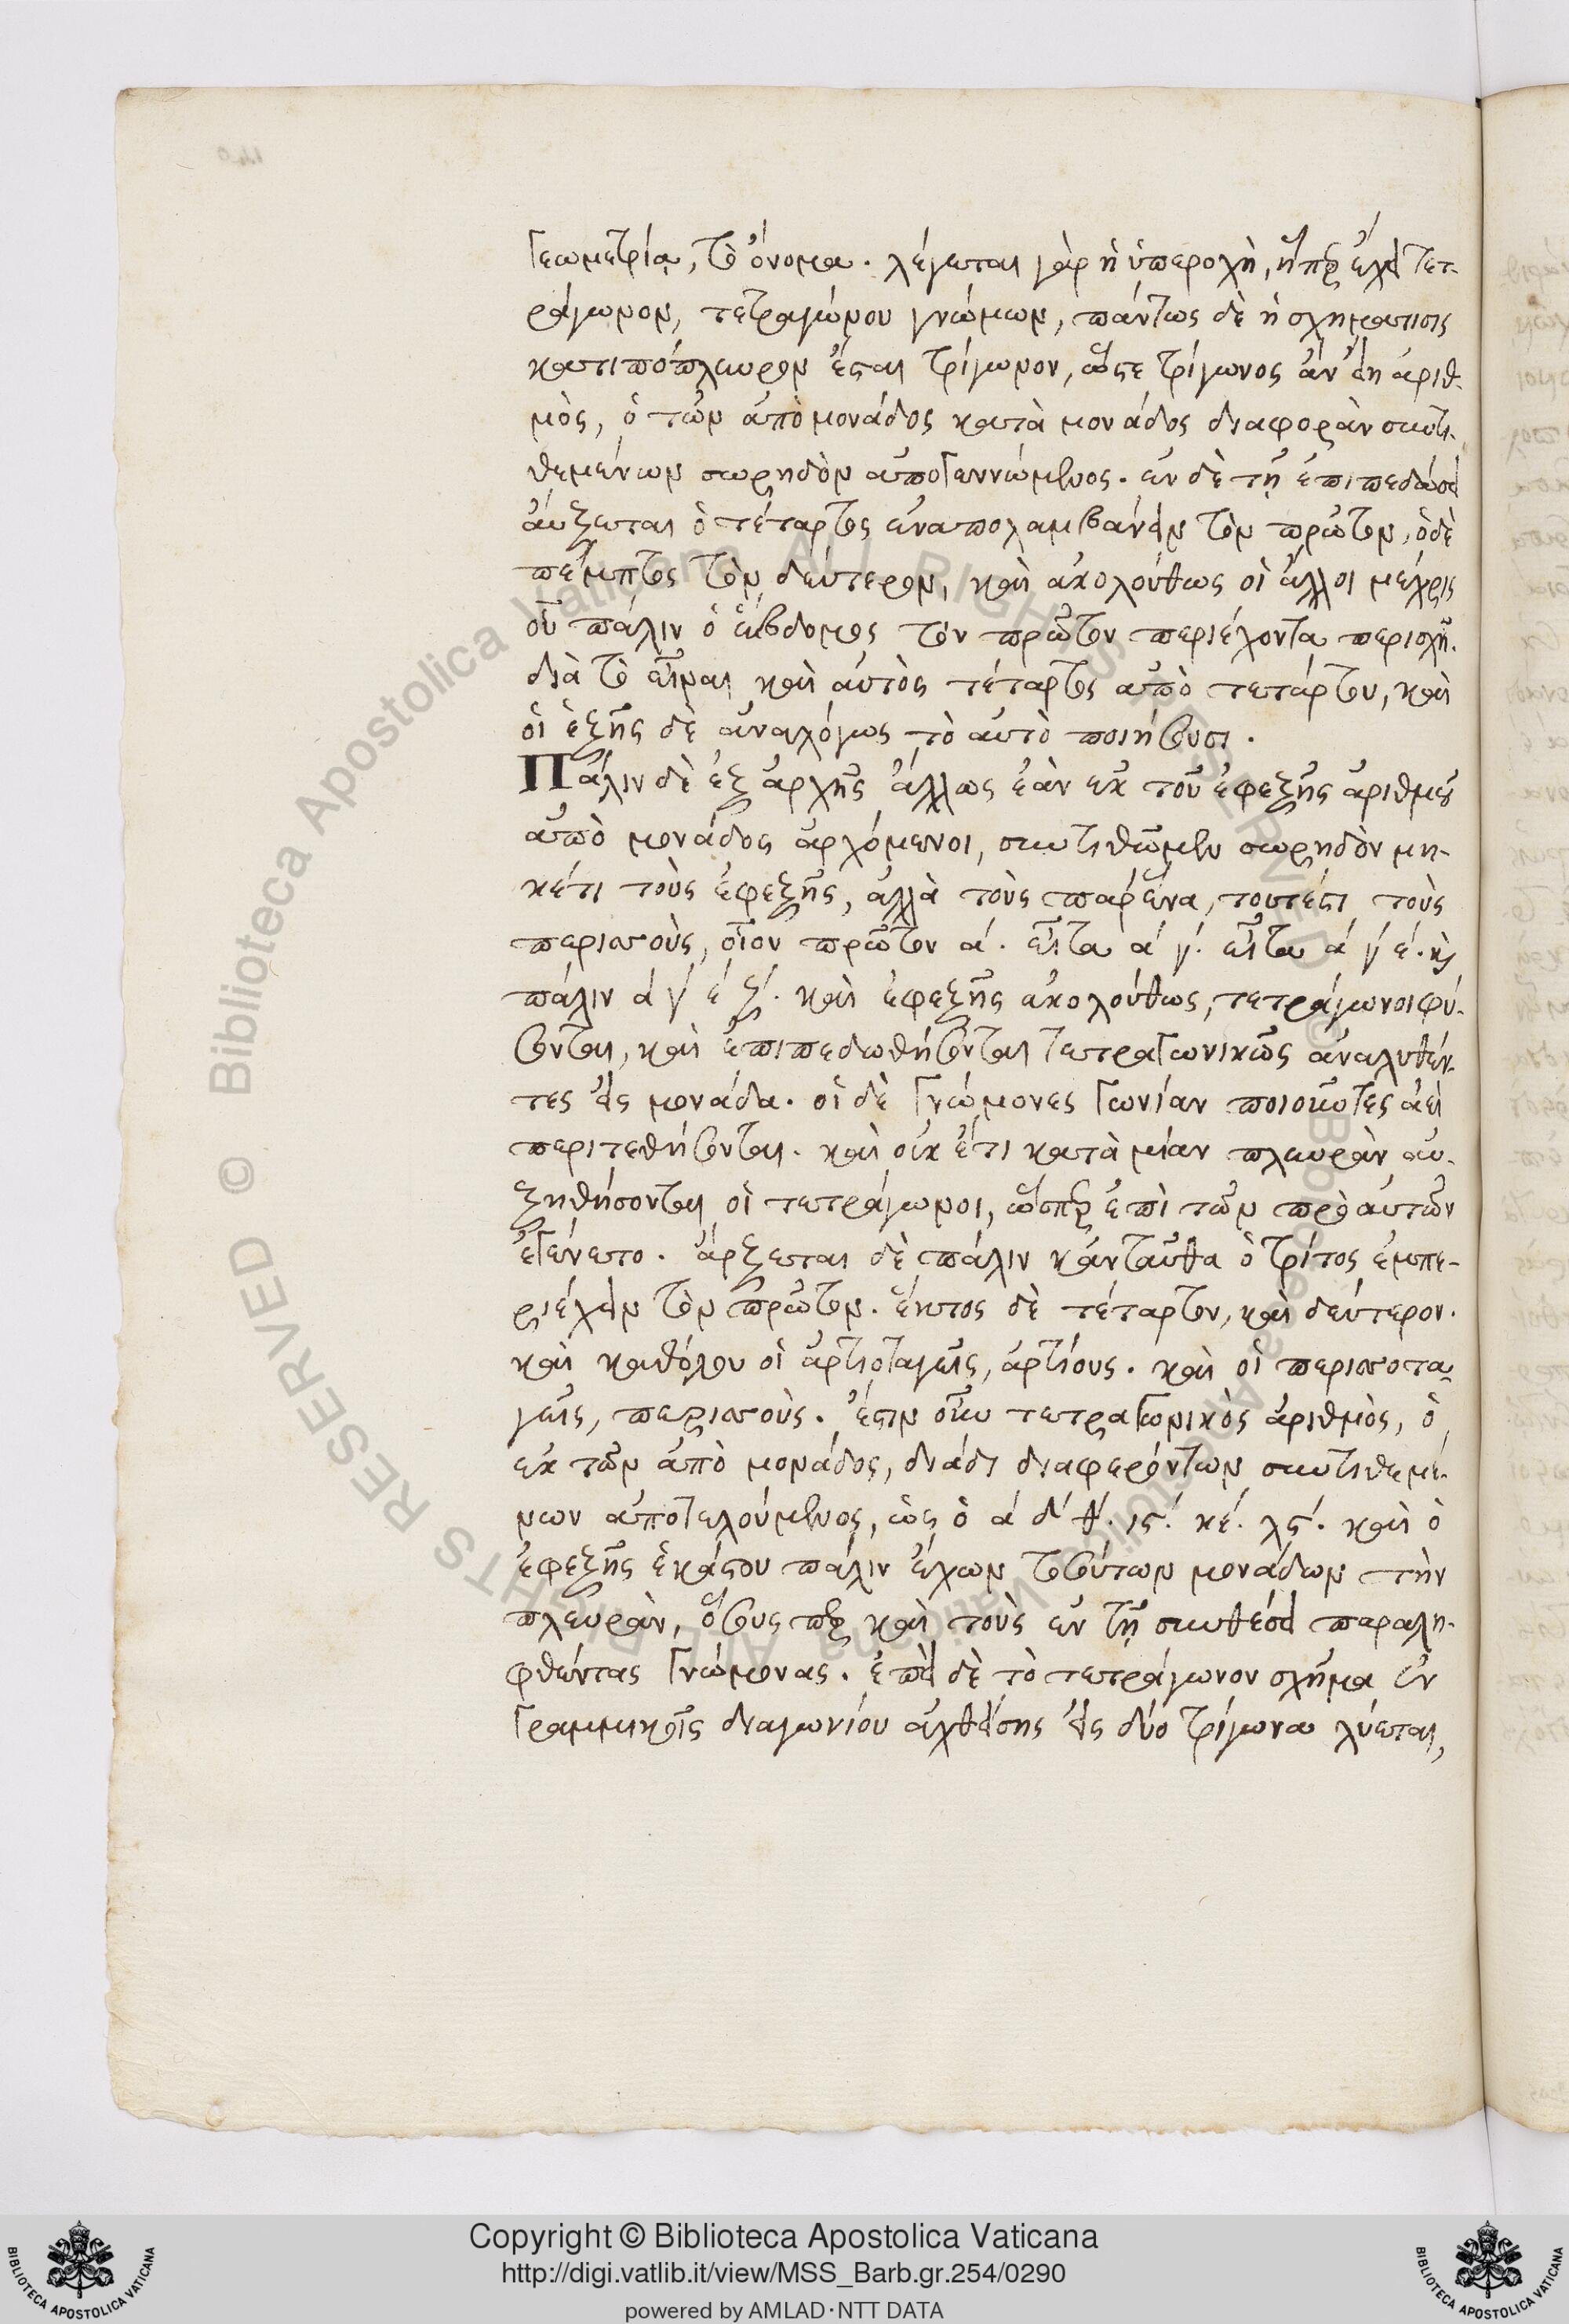 γεωμετρίᾳ, τὸ ὄνομα. λέγεται γὰρ ἡ ὑπεροχὴ, ἥπερ ἔχει τετ-
ράγωνον, τετραγώνου γνώμων, πάντως δὲ ἡ σχημάτισις
κατιπόπλευρον ἔσται τρίγωνον, ὥστε τρίγωνος ἂν εἴη ἀριθ-
μὸς, ὁ τῶν ἀπὸ μονάδος κατὰ μονάδος διαφορὰν συντι-
θεμένων σωρηδὸν ἀπογεννώμενος. ἐν δὲ τῇ ἐπιπεδώσει
ἄρξεται ὁ τέταρτος ἐναπολαμβάνειν τὸν πρῶτον, ὁ δὲ
πέμπτος τὸν δεύτερον, καὶ ἀκολούθως οἱ ἄλλοι μέχρις
οὗ πάλιν ὁ ἕβδομος τὸν πρῶτον περιέχοντα περισχῇ.
διὰ τὸ εἶναι καὶ αὐτὸς τέταρτος ἀπὸ τετάρτου, καὶ
οἱ ἑξῆς δὲ ἀναλόγως τὸ αὐτὸ ποιήσουσι.
Πάλιν δὲ ἐξ ἀρχῆς ἄλλως ἐὰν ἐκ τοῦ ἐφεξῆς ἀριθμοῦ
ἀπὸ μονάδος ἀρχόμενοι, συντιθῶμεν σωρηδὸν μη-
κέτι τοὺς ἐφεξῆς, ἀλλὰ τοὺς παρ' ἕνα, τουτέστι τοὺς
περισσοὺς, οἷον πρῶτον α΄. εἶτα α΄ γ΄. εἶτα α΄ γ΄ ε΄. καὶ
πάλιν α΄ γ΄ ε΄ ζ΄. καὶ ἐφεξῆς ἀκολούθως, τετράγωνοι φύ-
σονται, καὶ ἐπιπεδωθήσονται τετραγωνικῶς ἀναλυθέν-
τες εἰς μονάδα. οἱ δὲ γνώμονες γωνίαν ποιοῦντες ἀεὶ
περιτεθήσονται. καὶ οὐκ ἔτι κατὰ μίαν πλευρὰν αὐ-
ξηθήσονται οἱ τετράγωνοι, ὥσπερ ἐπὶ τῶν πρὸ αὐτῶν
ἐγένετο. ἄρξεται δὲ πάλιν κἀνταῦθα ὁ τρίτος ἐμπε-
ριέχειν τὸν πρῶτον. ἕκτος δὲ τέταρτον, καὶ δεύτερον.
καὶ καθόλου οἱ ἀρτιοταγεῖς, ἀρτίους. καὶ οἱ περισσοτα-
γεῖς, περισσοὺς. ἔστιν οὖν τετραγωνικὸς ἀριθμὸς, ὁ
ἐκ τῶν ἀπὸ μονάδος, δυάδι διαφερόντων συντιθεμέ-
νων ἀποτελούμενος, ὡς ὁ α΄ δ΄ θ΄. ις΄. κέ. λς΄. καὶ ὁ
ἐφεξῆς ἑκάστου πάλιν ἔχων τοσούτων μονάδων τὴν
πλευρὰν, ὅσους περ καὶ τοὺς ἐν τῇ συνθέσει παραλη-
φθέντας γνώμονας. ἐπεὶ δὲ τὸ τετράγωνον σχῆμα ἐν
γραμμικοῖς διαγωνίου ἀχθείσης εἰς δύο τρίγωνα λύεται,
© Biblioteca Apostolica Vaticana ALL RIGHTS RESERVED © Biblioteca Apostolica Vaticana ALL RIGHTS RESERVED
Copyright © Biblioteca Apostolica Vaticana
http://digi.vatlib.it/view/MSS_Barb.gr.254/0290
powered by AMLAD·NTT DATA
BIBLIOTECA APOSTOLICA VATICANA
BIBLIOTECA APOSTOLICA VATICANA